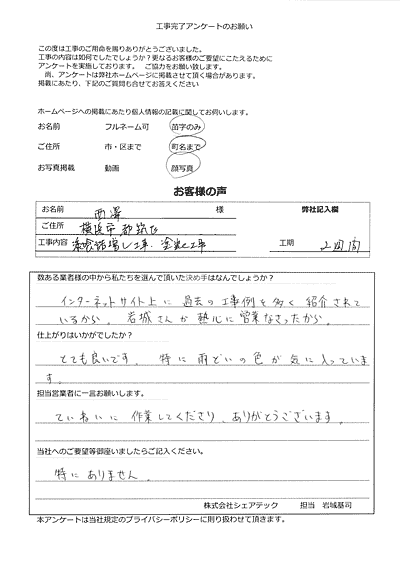 工事完了アンケートのお願い
この度は工事のご用命を賜りありがとうございました。
工事の内容は如何でしたでしょうか？更なるお客様のご要望にこたえるために
アンケートを実施しております。 ご協力をお願い致します。
尚、アンケートは弊社ホームページに掲載させて頂く場合があります。
掲載にあたり、下記のご質問も合せてお答えください
ホームページへの掲載にあたり個人情報の記載に関してお伺いします。
お名前 フルネーム可 苗字のみ
ご住所 市・区まで 町名まで
お写真掲載 動画 顔写真
お客様の声
お名前 西澤 様 弊社記入欄
ご住所 横浜市都筑区
工事内容 工事、塗装工事 工期 2週間
数ある業者様の中から私たちを選んで頂いた決め手はなんでしょうか？
インターネットサイト上に過去の工事例を多く紹介されて
いるから。岩城さんが熱心に営業なさったから。
仕上がりはいかがでしたか？
とても良いです。特に雨どいの色が気に入っていま
す。
担当営業者に一言お願いします。
ていねいに作業してくださり、ありがとうございます。
当社へのご要望等御座いましたらご記入ください。
特にありません。
株式会社シェアテック 担当 岩城基司
本アンケートは当社規定のプライバシーポリシーに則り扱わせて頂きます。